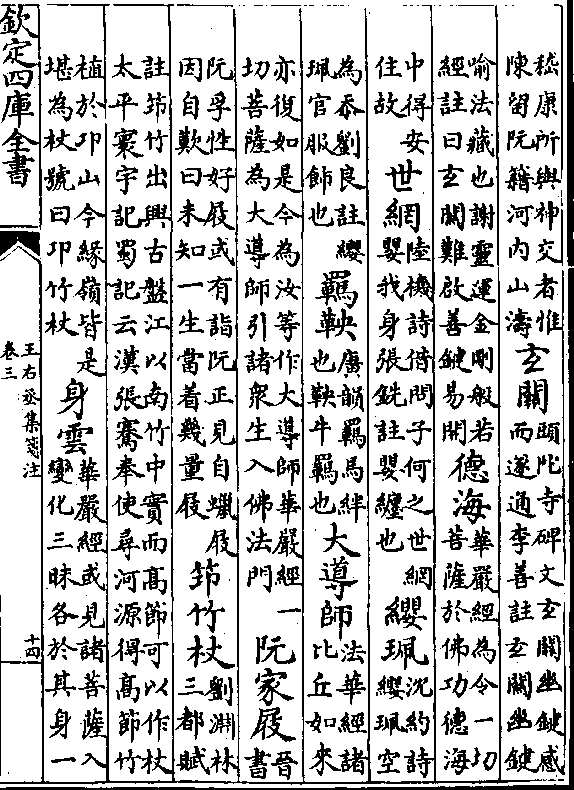 嵇康所與神交者惟
陳留阮籍河内山濤
玄關
頭陀寺碑文玄關幽鍵感
而遂通李善註玄關幽鍵
喻法藏也謝靈運金剛般若
經註曰玄關難啟善鍵易開
德海
華嚴經為令一切
菩薩於佛功德海
中得安
住故
世網
陸機詩借問子何之世網
嬰我身張銑註嬰纏也
纓珮
沈約詩
纓珮空
為忝劉良註纓
珮官服飾也
羈鞅
廣韻羈馬絆
也鞅牛羈也
大導師
法華經諸
比丘如來
亦復如是今為汝等作大導師華嚴經一
切菩薩為大導師引諸衆生入佛法門
阮家屐
晉
書
阮孚性好屐或有詣阮正見自蠟屐
因自歎曰未知一生當着幾量屐
笻竹杖
劉淵林
三都賦
註笻竹出興古盤江以南竹中實而髙節可以作杖
太平寰宇記蜀記云漢張騫奉使尋河源得髙節竹
植於卭山今緣嶺皆是
堪為杖號曰卭竹杖
身雲
華嚴經或見諸菩薩入
變化三昧各於其身一
欽定四庫全書
王右丞集箋注
卷三
十四